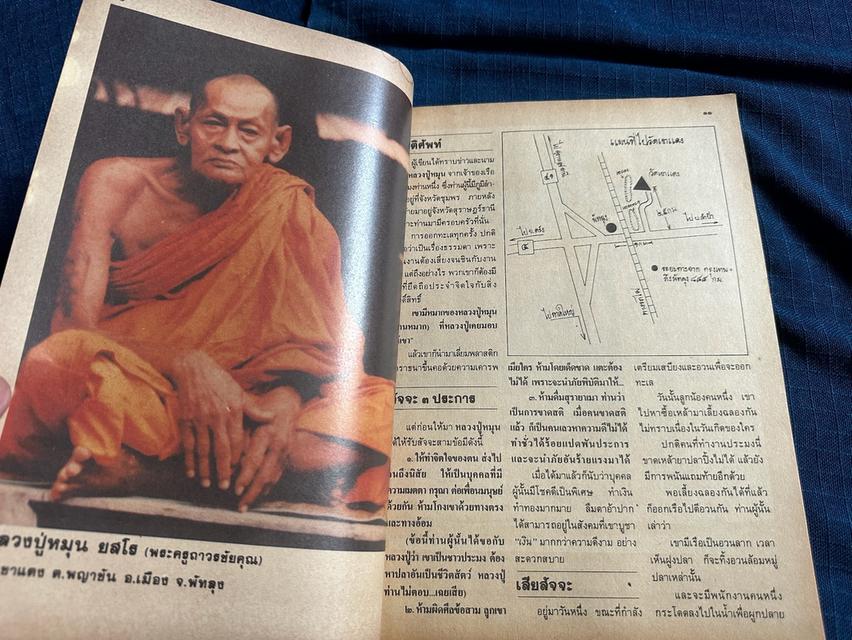 ลวงปู่หมุน ยสโร (พระครูถาวรชัยคุณ)
ขาแดง ต.พญาขัน อ.เมือง จ.พัทลุง
๑๑
ติศัพท์
ผู้เขียนได้ทราบข่าวและนาม
หลวงปู่หมุน จากเจ้าของเรือ
มงท่านหนึ่ง ซึ่งท่านผู้นี้มีภูมิลำ
อยู่ที่จังหวัดชุมพร ภายหลัง
ายมาอยู่จังหวัดสุราษฎร์ธานี
ราะท่านมามีครอบครัวที่นั่น
การออกทะเลทุกครั้ง ปกติ
อว่าเป็นเรื่องธรรมดา เพราะ
งานต้องเสี่ยงจนชินกับงาน
แต่ถึงอย่างไร พวกเขาก็ต้องมี
ที่ยึดถือประจำจิตใจกับสิ่ง
ดิ์สิทธิ์
เขามีหมากของหลวงปู่หมุน
านหมาก) ที่หลวงปู่เคยมอบ
เขา"
แล้วเขาก็นำมาเลี่ยมพลาสติก
ราธนาขึ้นคอด้วยความเคารพ
สัจจะ ๓ ประการ
แต่ก่อนให้มา หลวงปู่หมุน
ได้ให้รับสัจจะสามข้อมีดังนี้
๑. ให้ทำจิตใจของตน ส่งไป
นถึงนิสัย ให้เป็นบุคคลที่มี
ความเมตตา กรุณา ต่อเพื่อนมนุษย์
ด้วยกัน ห้ามโกงเขาด้วยทางตรง
และทางอ้อม
(ข้อนี้ท่านผู้นั้นได้ขอกับ
หลวงปู่ว่า เขาเป็นชาวประมง ต้อง
หาปลาอันเป็นชีวิตสัตว์ หลวงปู่
ท่านไม่ตอบ...เฉยเสีย)
๒. ห้ามผิดศีลข้อสาม ลูกเขา
แผนที่ไปวัดเขาแดง
วัดเขาแดง
พัทลุง
ไป จ.ตรัง
ไปหาดใหญ่
ระยะทางจาก กรุงเทพฯ
ถึงพัทลุง ๘๔๔ กม.
เมียใคร ห้ามโดยเด็ดขาด แตะต้อง
ไม่ได้ เพราะจะนำภัยพิบัติมาให้...
๓. ห้ามดื่มสุรายาเมา ท่านว่า
เป็นการขาดสติ เมื่อคนขาดสติ
แล้ว ก็เป็นคนเลวหาความดีไม่ได้
ทำชั่วได้ร้อยแปดพันประการ
และจะนำภัยอันร้ายแรงมาได้
เมื่อได้มาแล้วก็นับว่าบุคคล
ผู้นั้นมีโชคดีเป็นพิเศษ ทำเงิน
ทำทองมากมาย ลืมตาอ้าปาก
ได้สามารถอยู่ในสังคมที่เขาบูชา
"เงิน" มากกว่าความดีงาม อย่าง
สะดวกสบาย
เสียสัจจะ
อยู่มาวันหนึ่ง ขณะที่กำลัง
เตรียมเสบียงและอวนเพื่อจะออก
ทะเล
วันนั้นลูกน้องคนหนึ่ง เขา
ไปหาซื้อเหล้ามาเลี้ยงฉลองกัน
ไม่ทราบเนื่องในวันเกิดของใคร
ปกติคนที่ทำงานประมงนี่
ขาดเหล้ายาปลาปิ้งไม่ได้ แล้วยัง
มีการพนันแถมท้ายอีกด้วย
พอเลี้ยงฉลองกันได้ที่แล้ว
ก็ออกเรือไปตีอวนกัน ท่านผู้นั้น
เล่าว่า
เขามีเรือเป็นอวนลาก เวลา
เห็นฝูงปลา ก็จะทิ้งอวนล้อมหมู่
ปลาเหล่านั้น
และจะมีพนักงานคนหนึ่ง
กระโดดลงไปในน้ำเพื่อผูกปลาย